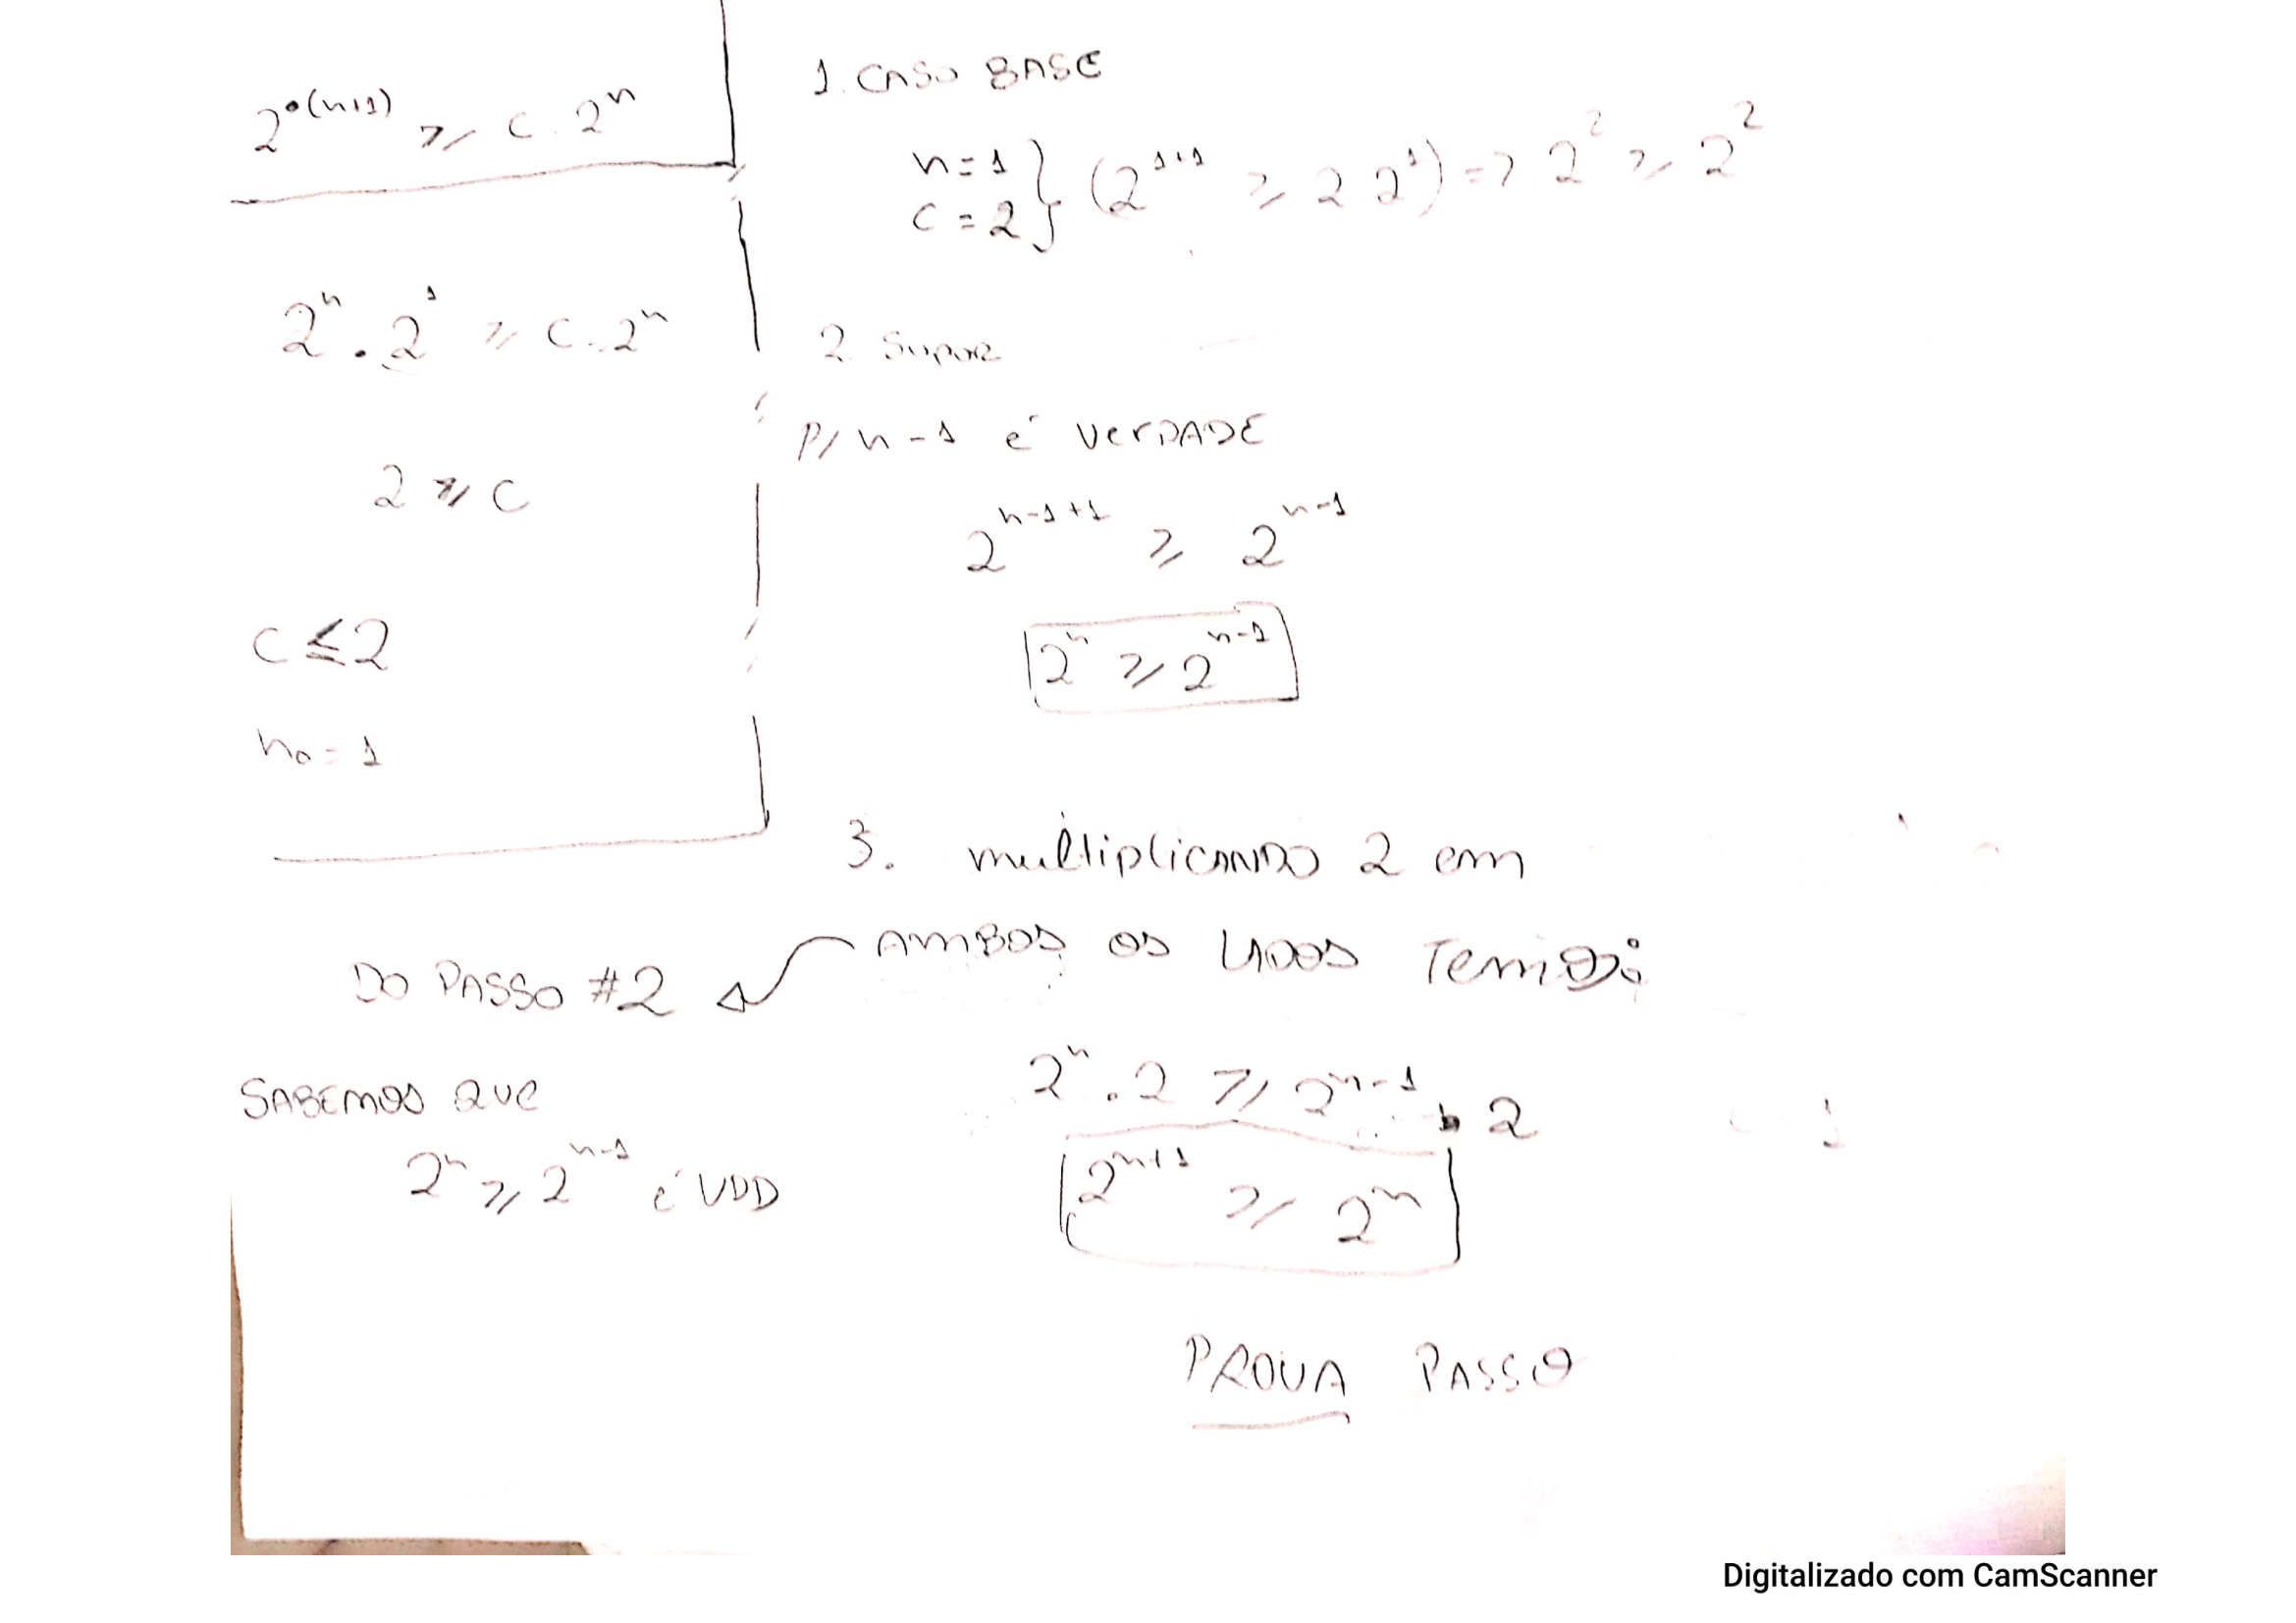 2^(n+1) ≥ C.2^n
2^n . 2^1 ≥ C.2^n
2 ≥ C
C ≤ 2
n₀ = 1
1. CASO BASE
n = 1
C = 2 } (2^(1+1) ≥ 2 2^1) => 2^2 ≥ 2^2
2. Supor
P/ n-1 é VerDADE
2^(n-1+1) ≥ 2^(n-1)
2^n ≥ 2^(n-1)
3. multiplicANDO 2 em
AmBOS OS LADOS Temos:
DO PASSO #2
2^n . 2 ≥ 2^(n-1) . 2
2^(n+1) ≥ 2^n
SABEMOS QUE
2^n ≥ 2^(n-1) é VDD
PROVA PASSO
Digitalizado com CamScanner